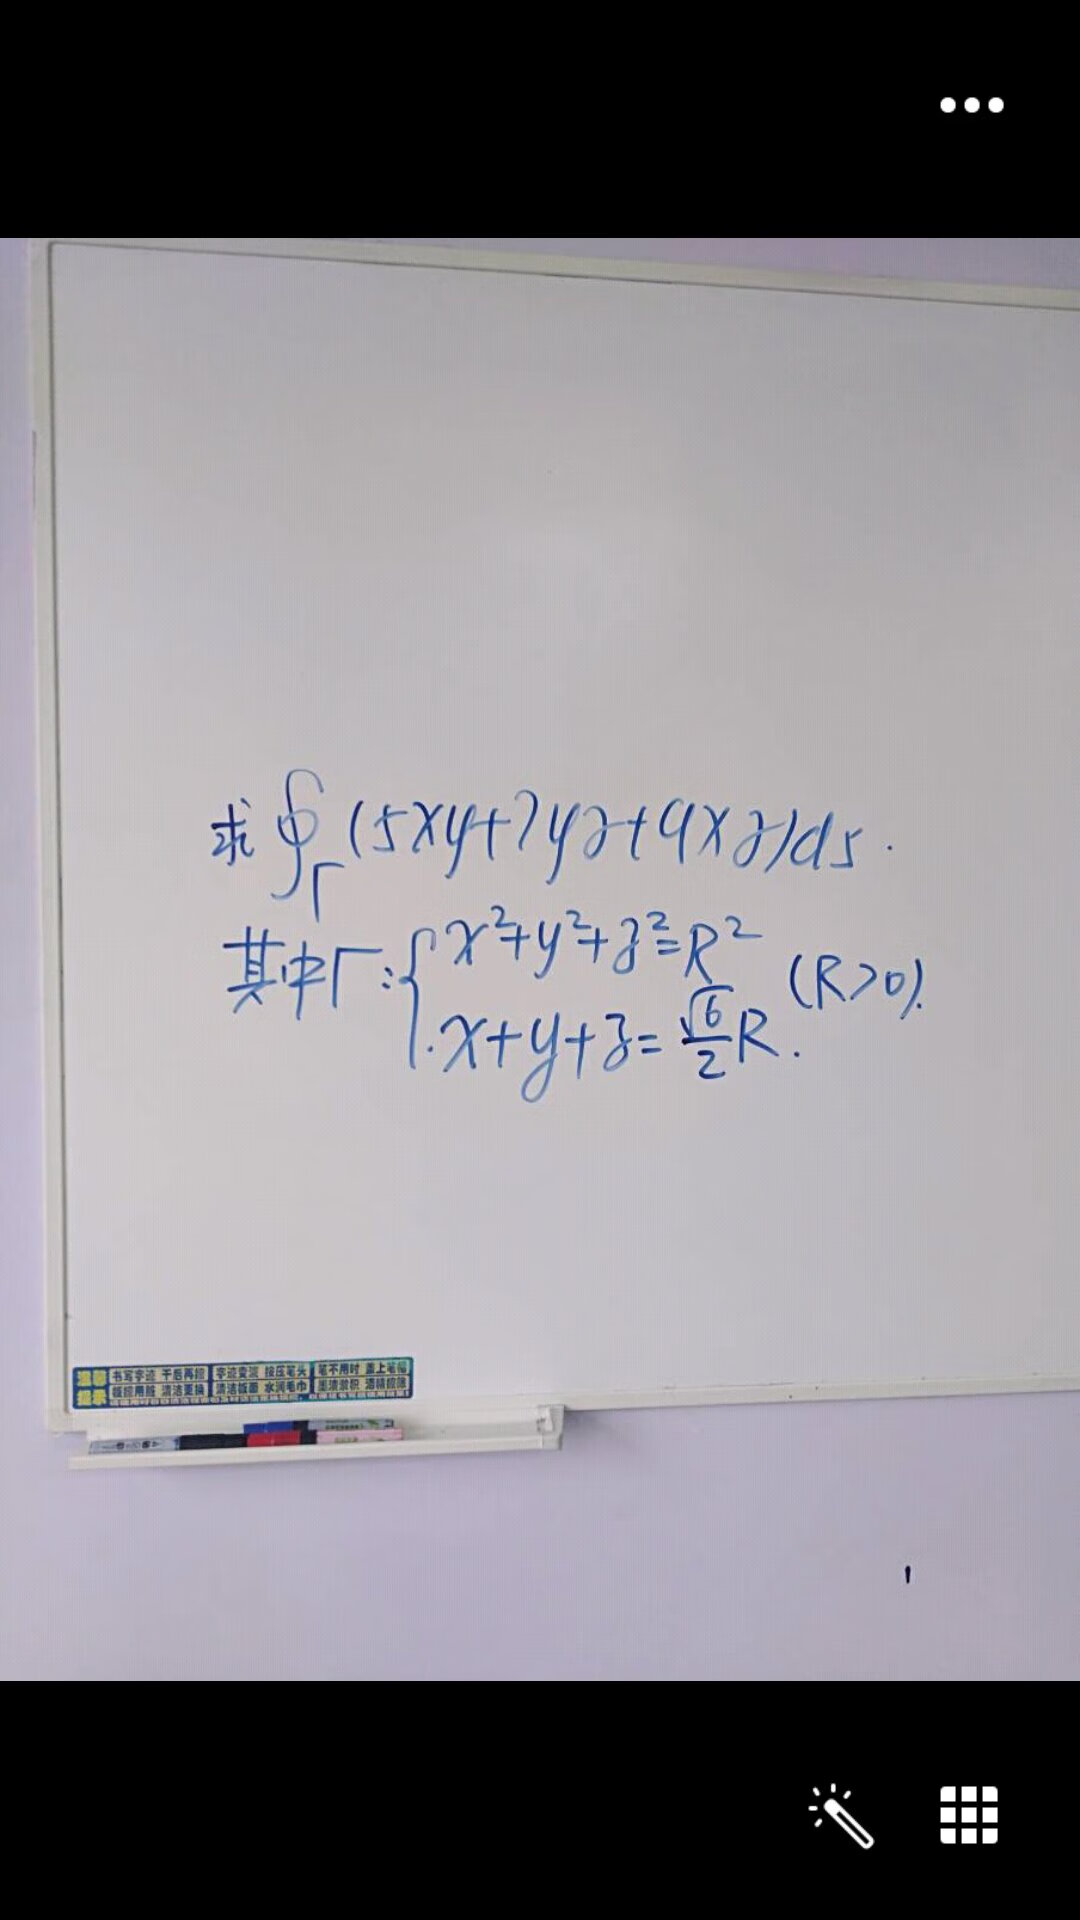 求∮_Γ (5xy+7yz+9xz)ds.
其中Γ:{x²+y²+z²=R² (R>0).
x+y+z=√6/2 R.
温馨 书写字迹 干后再擦 字迹变淡 按压笔头 笔不用时 盖上笔帽
提示 板擦用脏 清洁更换 清洁板面 水润毛巾